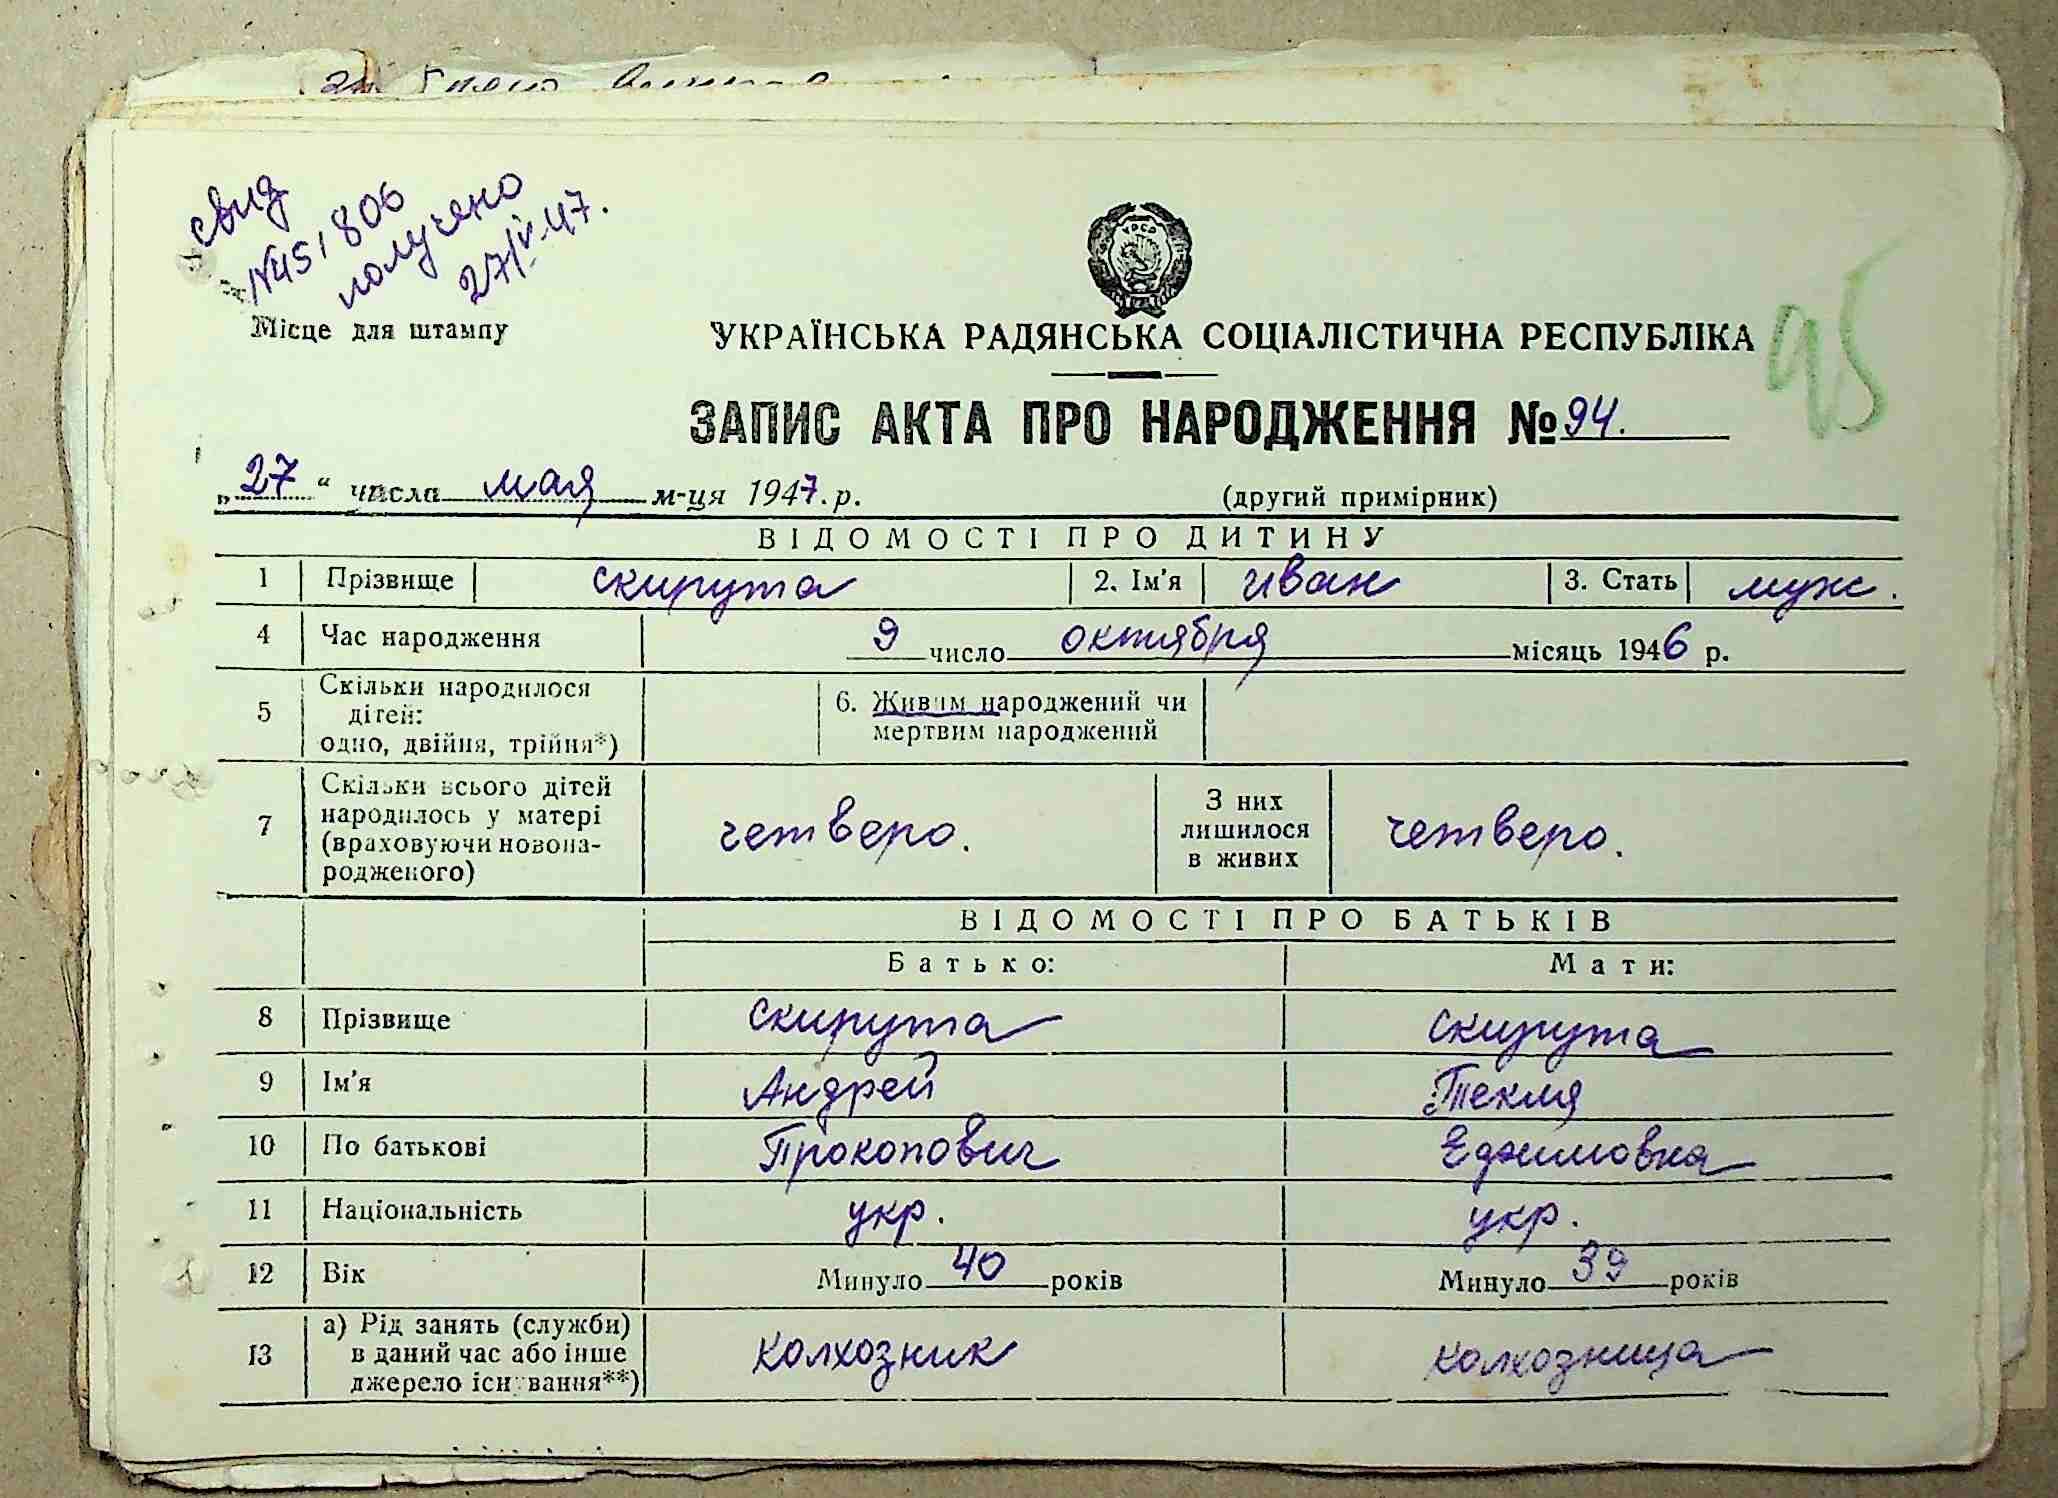 свид
№451806
получено
27/V-47.
Місце для штампу
УРСР
УКРАЇНСЬКА РАДЯНСЬКА СОЦІАЛІСТИЧНА РЕСПУБЛІКА
95
ЗАПИС АКТА ПРО НАРОДЖЕННЯ № 94.
„27“ числа мая м-ця 1947. р. (другий примірник)
ВІДОМОСТІ ПРО ДИТИНУ
1 Прізвище скирута 2. Ім'я иван 3. Стать муж.
4 Час народження 9 число октября місяць 1946 р.
5 Скільки народилося
дітей:
одно, двійня, трійня*)
6. Живим народжений чи
мертвим народжений
7 Скільки всього дітей
народилось у матері
(враховуючи новона-
родженого)
четверо.
З них
лишилося
в живих
четверо.
ВІДОМОСТІ ПРО БАТЬКІВ
Батько: Мати:
8 Прізвище скирута скирута
9 Ім'я Андрей Текля
10 По батькові Прокопович
11 Національність укр. укр.
12 Вік Минуло 40 років Минуло 39 років
13 а) Рід занять (служби)
в даний час або інше
джерело існування**)
колхозник колхозница